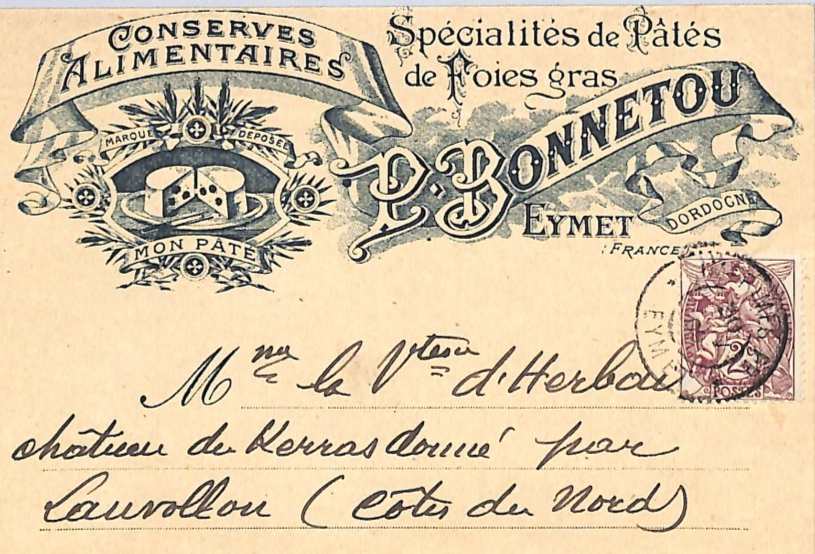 CONSERVES
ALIMENTAIRES
Spécialités de Pâtés
de Foies gras
MARQUE DÉPOSÉE
P. BONNETOU
MON PÂTÉ
EYMET
DORDOGNE
(FRANCE)
Mme la Vtesse d'Herbau
château de Kerrasdoué par
Lanvollon (Côtes du Nord)
EYMET
2
POSTES